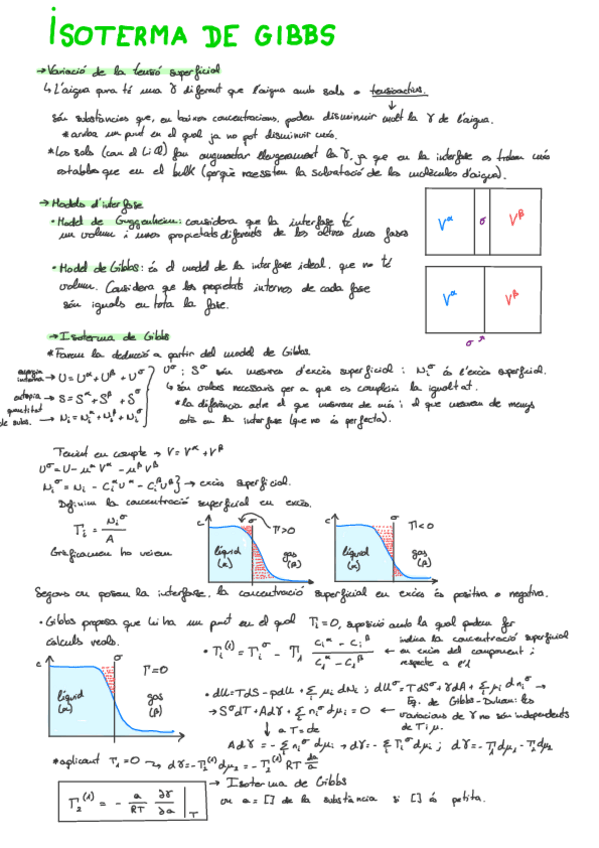 ISOTERMA DE GIBBS
→ Variació de la tensió superficial
↳ L'aigua pura té una γ diferent que l'aigua amb sals o tensioactius.
són substàncies que, en baixes concentracions, poden disminuir molt la γ de l'aigua.
* arriba un punt en el qual ja no pot disminuir més.
* Les sals (com el LiCl) fan augmentar lleugerament la γ, ja que en la interfase es troben més
estables que en el bulk (perquè necessiten la solvatació de les molècules d'aigua).
→ Models d'interfase
• Model de Guggenheim: considera que la interfase té
un volum i unes propietats diferents de les altres dues fases
V^α σ V^β
• Model de Gibbs: és el model de la interfase ideal, que no té
volum. Considera que les propietats internes de cada fase
són iguals en tota la fase.
V^α V^β
σ
→ Isoterma de Gibbs
* Farem la deducció a partir del model de Gibbs.
energia interna → U = U^α + U^β + U^σ
entropia → S = S^α + S^β + S^σ
quantitat de subs. → N_i = N_i^α + N_i^β + N_i^σ
U^σ i S^σ són mesures d'excés superficial i N_i^σ és l'excés superficial.
↳ són valors necessaris per a que es compleixi la igualtat.
* la diferència entre el que mesurem de més i el que mesurem de menys
està en la interfase (que no és perfecta).
Tenint en compte → V = V^α + V^β
U^σ = U - μ^α V^α - μ^β V^β
N_i^σ = N_i - C_i^α V^α - C_i^β V^β } → excés superficial.
Definim la concentració superficial en excés.
Γ_i = N_i^σ / A
Gràficament ho veiem
c σ Γ>0 líquid (α) gas (β)
c σ Γ<0 líquid (α) gas (β)
Segons on posem la interfase, la concentració superficial en excés és positiva o negativa.
• Gibbs proposa que hi ha un punt en el qual Γ_i = 0, suposició amb la qual podem fer
càlculs reals.
• Γ_i^(1) = Γ_i^σ - Γ_1 (C_i^α - C_i^β) / (C_1^α - C_1^β) ← indica la concentració superficial
en excés del component i
respecte a l'1
c σ Γ=0 líquid (α) gas (β)
• dU = TdS - pdU + Σ_i μ_i dN_i ; dU^σ = TdS^σ + γdA + Σ_i μ_i dn_i^σ →
→ S^σdT + Adγ + Σ_i n_i^σ dμ_i = 0 ← Eq. de Gibbs-Duhem: les
variacions de γ no són independents
de T i μ.
↓ a T = cte
Adγ = - Σ_i n_i^σ dμ_i → dγ = - Σ_i Γ_i^σ dμ_i ; dγ = -Γ_1 dμ_1 - Γ_2 dμ_2
* aplicant Γ_1 = 0 → dγ = -Γ_2^(1) dμ_2 = -Γ_2^(1) RT da/a
Γ_2^(1) = - a/RT ∂γ/∂a |_T
→ Isoterma de Gibbs
on a = [] de la substància si [] és petita.